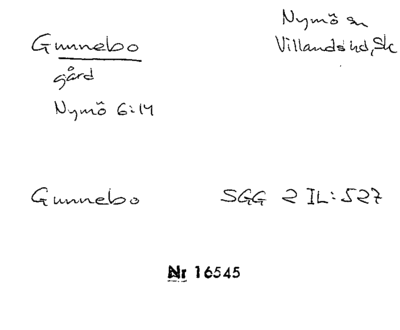 Gunnebo
gård
Nymö 6:14
Nymö sn
Villands hd, Sk
Gunnebo SGG 2 IL:527
Nr 16545